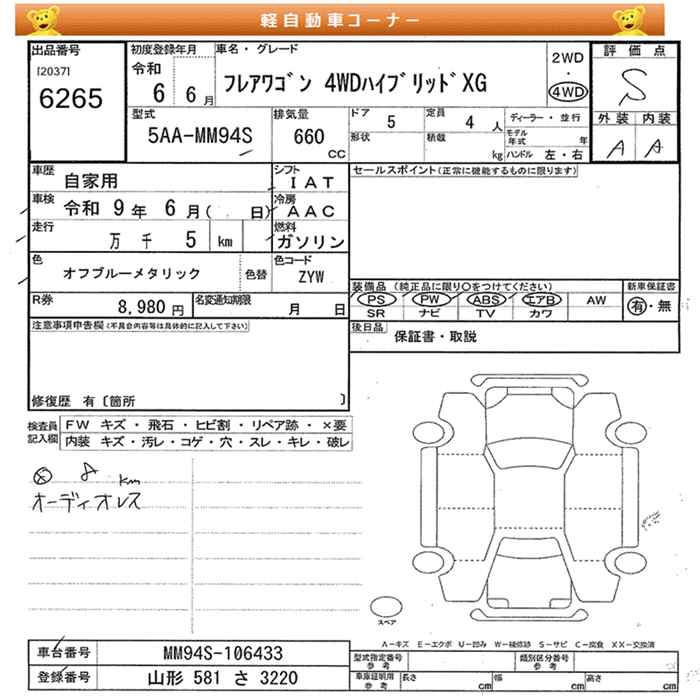 軽自動車コーナー
出品番号
[2037]
6265
初度登録年月
令和
6 6月
車名・グレード
フレアワゴン 4WDハイブリッドXG
2WD
・
4WD
評価点
S
外装 内装
A A
型式
5AA-MM94S
排気量
660
CC
ドア
5
定員
4 人
形状
積載
kg
ディーラー・並行
モデル年式 年
ハンドル 左・右
車歴
自家用
シフト
IAT
車検
令和 9年 6月( 日)
冷房
AAC
走行
万 千 5 km
燃料
ガソリン
色
オフブルーメタリック
色替
色コード
ZYW
R券
8,980 円
名変通知期限
月 日
セールスポイント(正常に機能するものに限ります)
装備品 (純正品に限り○をつけてください)
新車保証書
PS PW ABS エアB AW
SR ナビ TV カワ
有・無
後日品
保証書・取説
注意事項申告欄(不具合内容等は具体的に記入して下さい)
修復歴 有〔箇所 〕
検査員
記入欄
FW キズ・飛石・ヒビ割・リペア跡・×要
内装 キズ・汚レ・コゲ・穴・スレ・キレ・破レ
8 km
オーディオレス
スペア
A-キズ E-エクボ U-凹み W-補修跡 S-サビ C-腐食 XX-交換済
車台番号
MM94S-106433
登録番号
山形 581 さ 3220
型式指定番号
参考
類別区分番号
参考
車庫証明用
参考
長さ cm
幅 cm
高さ cm